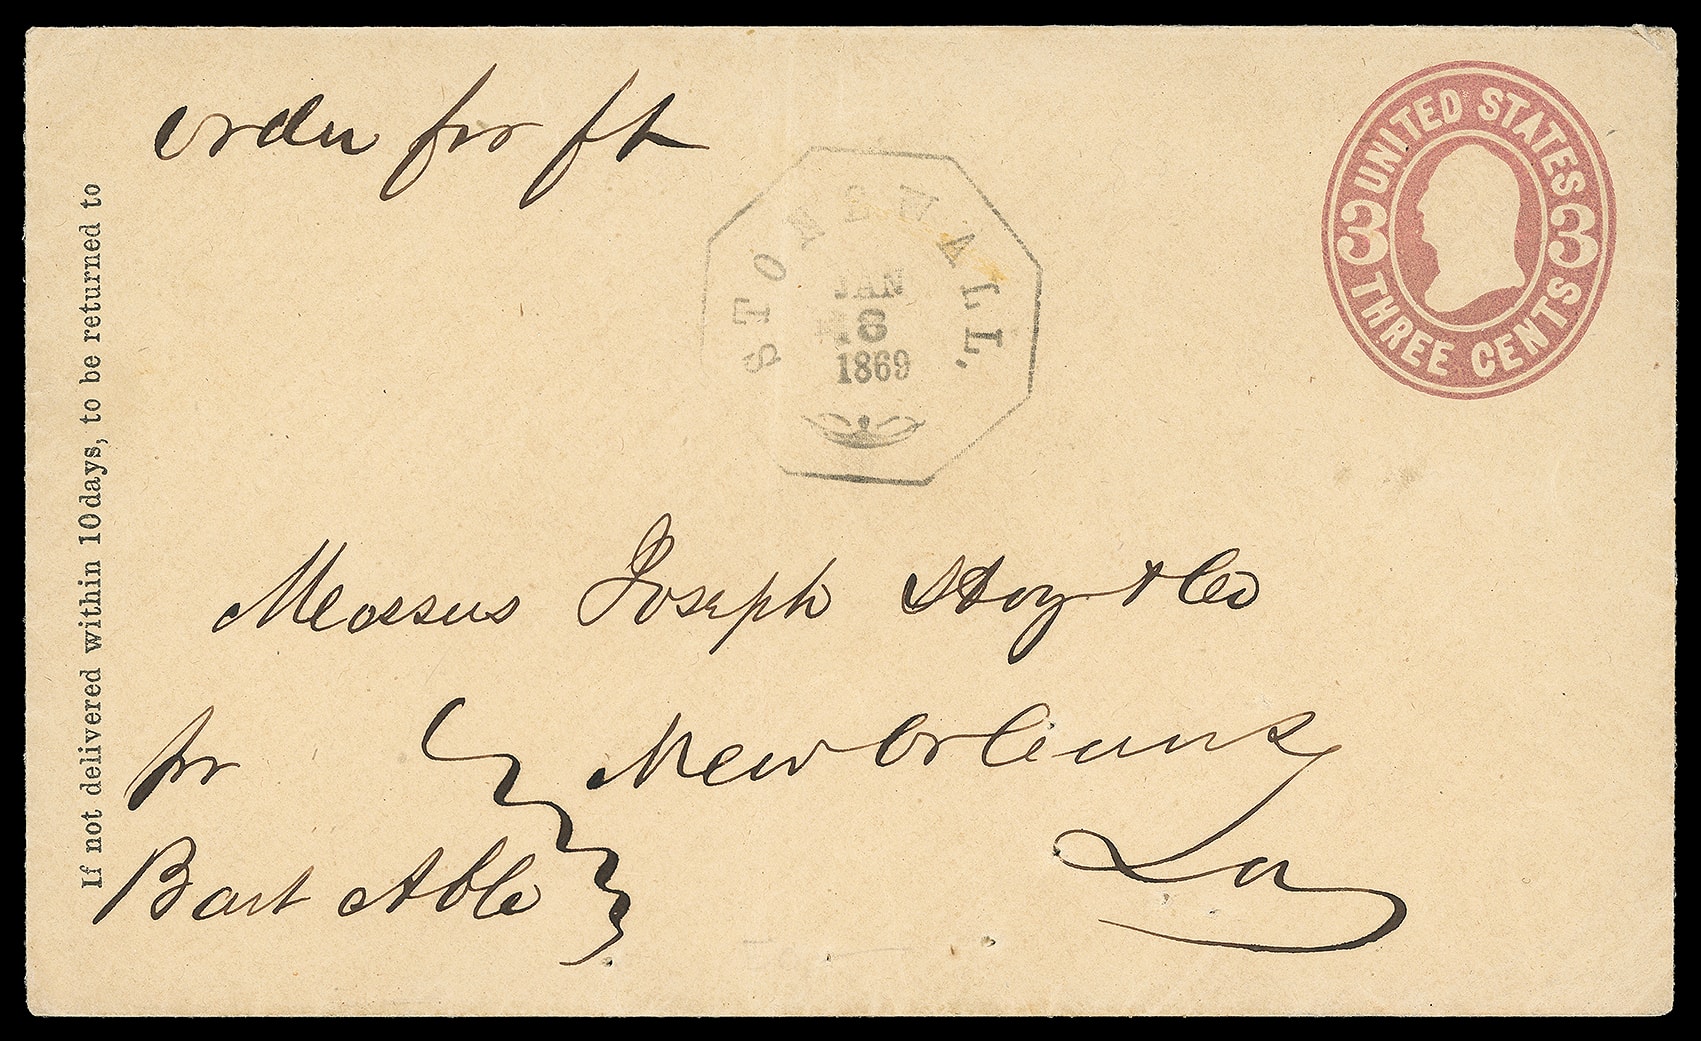 order for ft
UNITED STATES
3 3
THREE CENTS
STONEWALL.
JAN
18
1869
If not delivered within 10 days, to be returned to
Messrs Joseph Hoy & Co
for
New Orleans
Bart Able
La